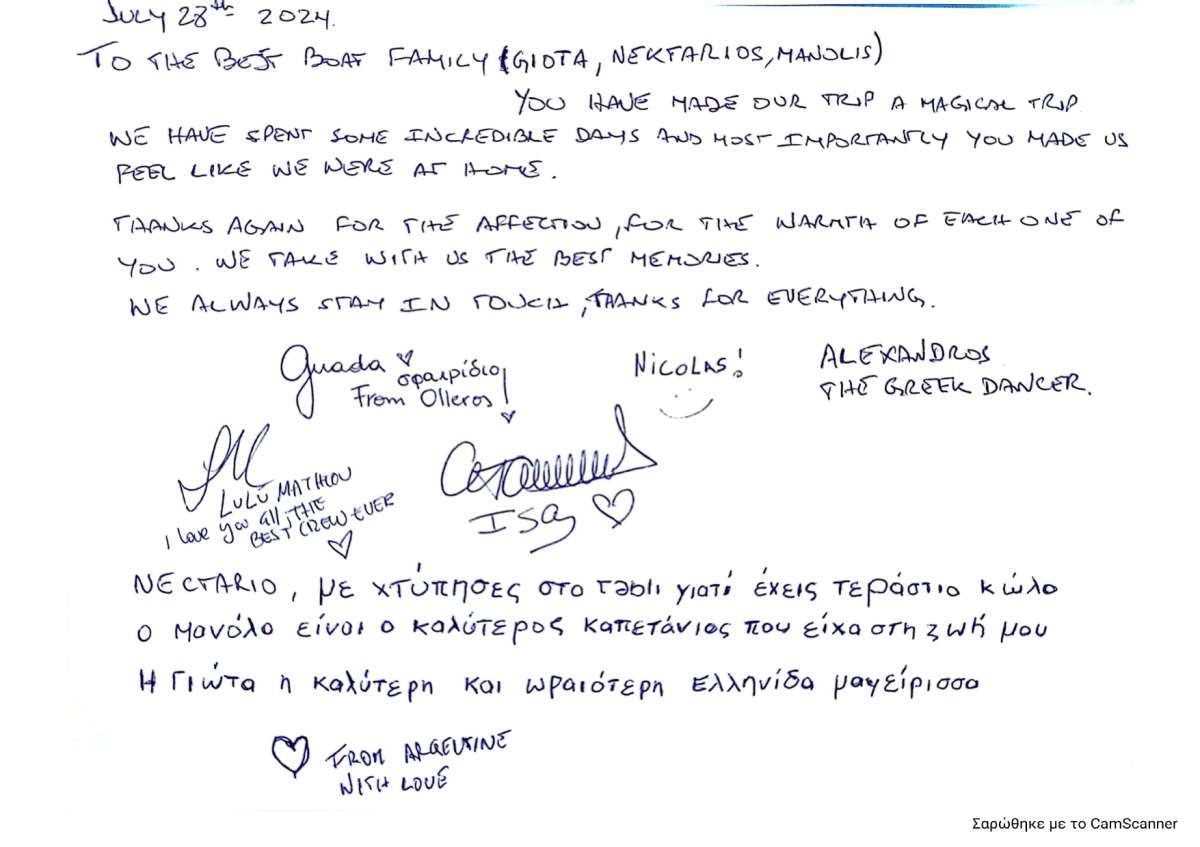 JULY 28th 2024.
TO THE BEST BOAT FAMILY (GIOTA, NEKTARIOS, MANOLIS)
YOU HAVE MADE OUR TRIP A MAGICAL TRIP
WE HAVE SPENT SOME INCREDIBLE DAYS AND MOST IMPORTANTLY YOU MADE US
FEEL LIKE WE WERE AT HOME.
THANKS AGAIN FOR THE AFFECTION, FOR THE WARMTH OF EACH ONE OF
YOU. WE TAKE WITH US THE BEST MEMORIES.
WE ALWAYS STAY IN TOUCH, THANKS FOR EVERYTHING.
Guada
σφαιρίδιο
From Olleros!
Nicolas!
ALEXANDROS
THE GREEK DANCER.
LULÚ MATHOU
I love you all, THE
BEST CREW EVER
Isa
NECTARIO, με χτύπησες στο τabli γιατί έχεις τεράστιο κώλο
ο Μανόλο είναι ο καλύτερος καπετάνιος που είχα στη ζωή μου
Η Γιώτα η καλύτερη και ωραιότερη Ελληνίδα μαγείρισσα
FROM ARGENTINE
WITH LOVE
Σαρώθηκε με το CamScanner